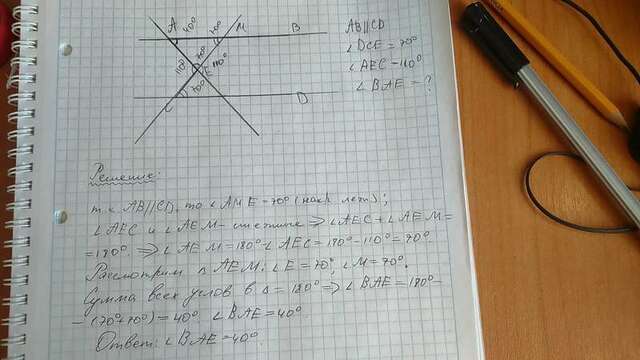 A 40° 70° M B
110° 70° E 110°
70°
C D
AB||CD
∠DCE = 70°
∠AEC - 110°
∠BAE = ?
Решение:
т.к. AB||CD, то ∠AME = 70° (накр. леж.);
∠AEC и ∠AEM - смежные ⇒ ∠AEC + ∠AEM =
= 180° ⇒ ∠AEM = 180° - ∠AEC = 180° - 110° = 70°.
Рассмотрим Δ AEM: ∠E = 70°, ∠M = 70°.
Сумма всех углов в Δ = 180° ⇒ ∠BAE = 180° -
- (70° + 70°) = 40°. ∠BAE = 40°.
Ответ: ∠BAE = 40°.